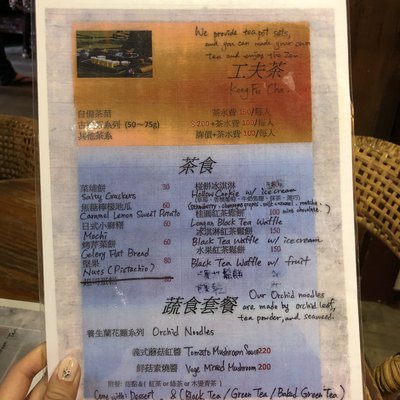 We provide tea pot sets,
and you can made your own
tea and enjoy the Zen.
工夫茶
Kong Fu Cha
自備茶葉 茶水費 150/每人
系列 (50~75g) $200+茶水費 100/每人
其他茶系 牌價+茶水費 100/每人
茶食
菜埔餅 60
Salty Crackers
Hollow Cookie w/ ice cream
焦糖檸檬地瓜 60
Caramel Lemon Sweet Potato
桂圓紅茶鬆餅 100
日式小麻糬 60
Longan Black Tea Waffle
Mochi
冰淇淋紅茶鬆餅 150
烤芹菜餅 60
Black Tea Waffle w/ ice cream
Celery Flat Bread
水果紅茶鬆餅 150
堅果 80
Black Tea Waffle w/ fruit
Nuts (Pistachio)
蔬食套餐
Our Orchid noodles
are made by orchid leaf,
tea powder, and seaweed.
養生蘭花麵系列 Orchid Noodles
義式蘑菇紅醬 Tomato Mushroom Soup 220
鮮菇素燒醬 Vege Mixed Mushroom 200
附餐: 甜點& (紅茶 or 綠茶 or 木瓜青茶)
Come with: Dessert & (Black Tea / Green Tea / Baked Green Tea)